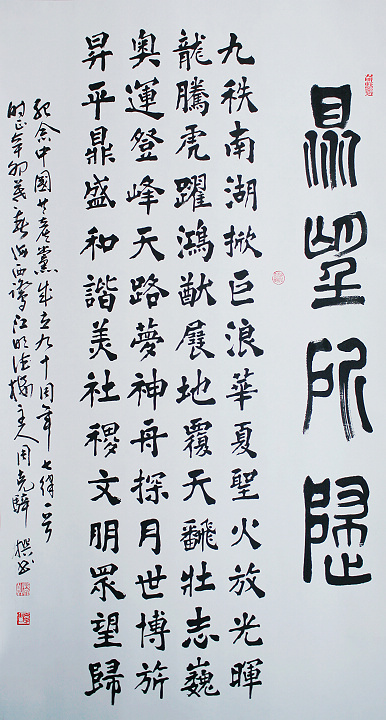 眾望所歸
九秩南湖掀巨浪華夏聖火放光暉
龍騰虎躍鴻猷展地覆天翻壯志巍
奧運登峰天路夢神舟探月世博旂
昇平鼎盛和諧美社稷文明眾望歸
紀念中國共產黨成立九十周年七律一首
時正辛卯春海西鷺江主人周克撰书